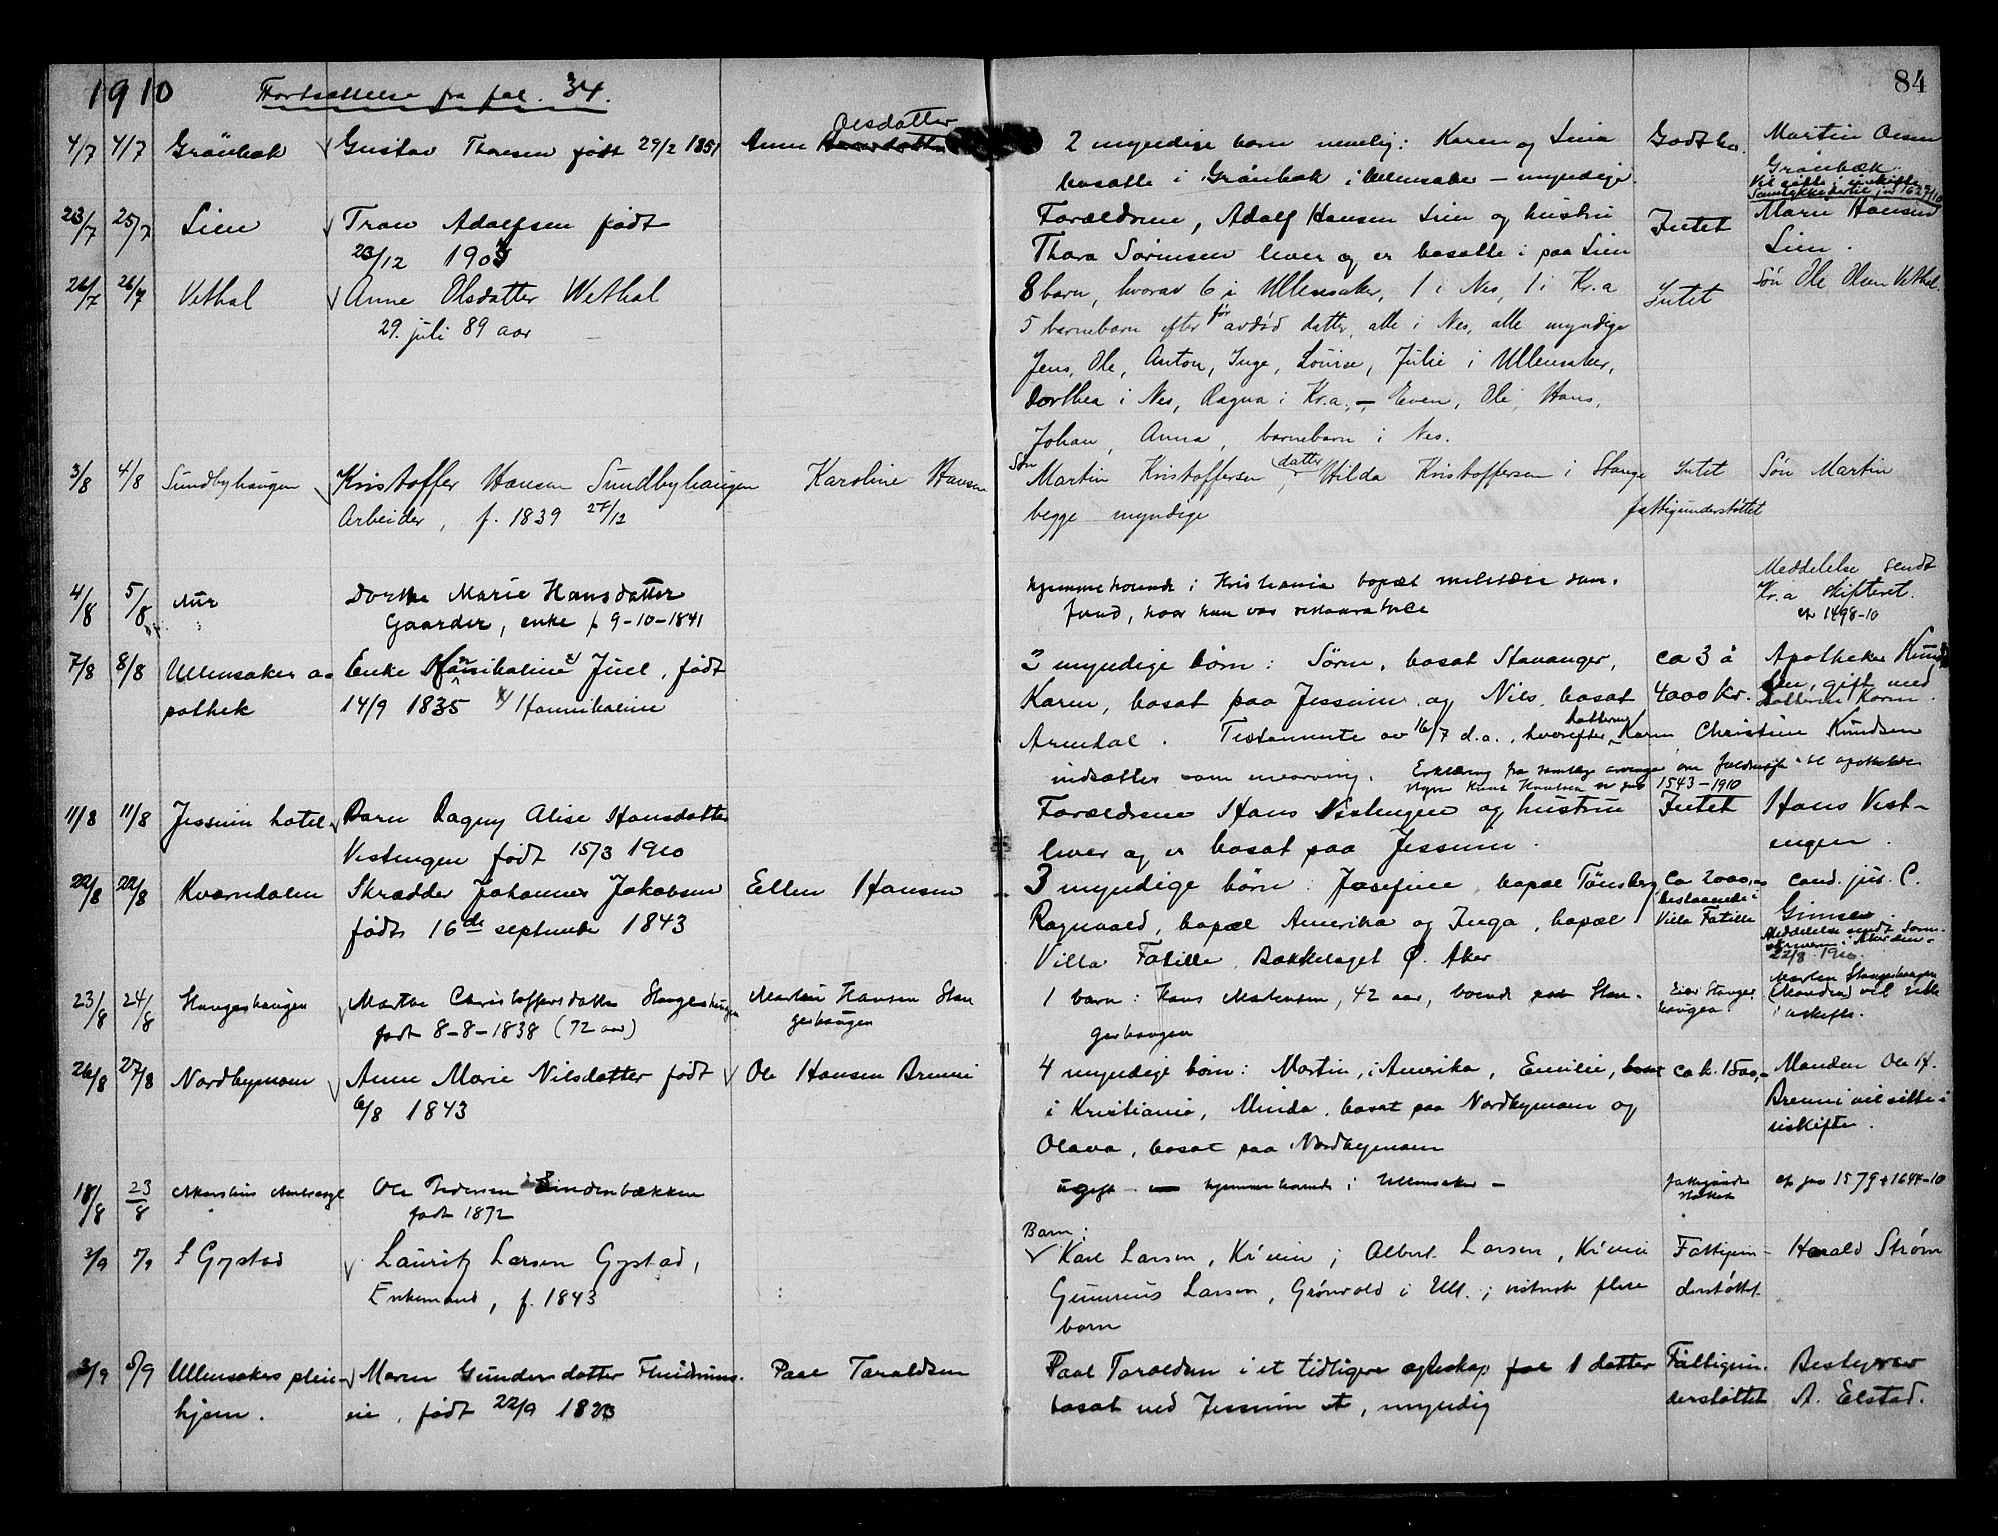 1910 Fortsættelse fra fol. 34.
84
4/7 4/7 Grönbæk Gustav Thoresen født 29/2 1851 Anne Olsdatter 2 myndige barn nemlig: Karen og Lina Godt bo. Martin Olsen
bosatte i Grönbæk i Ullensaker – myndige. Grönbæk.
Vil sitte i uskifte
23/7 25/7 Lien Adolfsen født Forældrene, Adolf Hansen Lien og hustru Intet Marie Hansen
23/12 1905 Thora Sørensen lever og er bosatte i paa Lien Lien.
26/7 26/7 Vethal Anne Olsdatter Wethal 8 barn, hvorav 6 i Ullensaker, 1 i Nes, 1 i Kr.a Intet Søn Ole Olsen Vethal.
29. juli 89 aar 5 barnebarn efter før avdød datter, alle i Nes, alle myndige
Jens, Ole, Anton, Inge, Louise, Julie i Ullensaker,
Dorthea i Nes, Ragna i Kr.a, – Even, Ole, Hans,
Johan, Anna, barnebarn i Nes.
3/8 4/8 Sundbyhaugen Kristoffer Hansen Sundbyhaugen Karoline Hansen Søn Martin Kristoffersen, datter Hilda Kristoffersen i Stange Intet Søn Martin
Arbeider, f. 1839 27/12 begge myndige fattigunderstøttet
4/8 5/8 Aur Dorthe Marie Hansdatter hjemmehørende i Kristiania bopæl militære sam- Meddelelse sendt
Gaarder, enke f 9-10-1841 fund, hvor hun var restauratrice Kr.a skifteret.
1498-10
7/8 8/8 Ullensaker a- Enke Juel, født 3 myndige børn: Sørn, bosat Stavanger, ca 3 à Apotheker Knud
pothek 14/9 1835 x/ Hannibaline Karen, bosat paa Jessum og Nils, bosat 4000 kr. sen, gift med
datteren Karen.
Arendal. Testamente av 16/7 d.a., hvorefter datteren Karen Christine Knudsen
indsættes som enearving. Erklæring fra samtlige arvinger om
1543-1910
11/8 11/8 Jessum hotel Barn Ragny Alise Hansdatter Forældrene Hans Vestengen og hustru Intet Hans Vest-
Vestengen født 15/3 1910 lever og er bosat paa Jessum. engen.
22/8 22/8 Kværndalen Skrædder Johannes Jakobsen Ellen Hansen 3 myndige børn: Josefine, bopæl Tönsberg, ca 2000,00 cand. jur. C.
født 16de september 1843 Ragnvald, bopæl Amerika og Inga, bopæl bestaaende i Villa Fatille Gimse.
Villa Fatille, Bækkelaget Ø. Aker Meddelelse sendt Soren-
skriveren i Aker den
22/8 1910.
23/8 24/8 Stangeshaugen Marthe Christoffersdatter Stangeshaugen Martin Hansen Stan 1 barn: Hans Martinsen, 42 aar, boende paa Stan- Eier Stanges Martin Stangeshaugen
født 8-8-1838 (72 aar) geshaugen geshaugen haugen (Manden) vil sitte
i uskifte.
26/8 27/8 Nordbymoen Anne Marie Nilsdatter født Ole Hansen Brenni 4 myndige børn: Martin, i Amerika, Emilie, ca k. 1500,- Manden Ole H.
6/8 1843 i Kristiania, Minda, bosat paa Nordbymoen og Brenni vil sitte i
Olava, bosat paa Nordbymoen uskifte.
18/8 23/8 Akershus Ole Pedersen Lindenbækken ugift – hjemmehørende i Ullensaker – 1579 + 1644-10
født 1872
3/9 5/9 Gystad Lauritz Larsen Gystad, Barn: Karl Larsen, Kr'ania; Albert Larsen, Kr'ania Fattigun- Harald Strøm
Enkemand, f. 1843 Gunerius Larsen, Grønvold i Ull.; vistnok flere derstøttet.
barn
3/9 5/9 Ullensakers pleie- Maren Gundersdatter Paal Taraldsen Paal Taraldsen i et tidligere ægteskap 1 datter Fattigun- Bestyrer
hjem. født 22/9 1823 bosat ved Jessum st, myndig derstøttet A. Elstad.